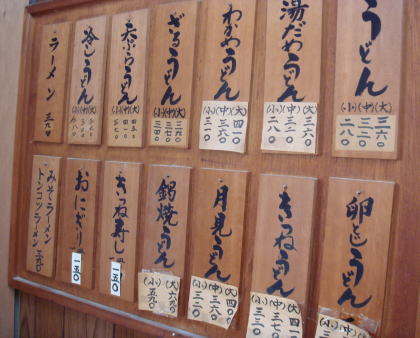 うどん
(大)(中)(小)
三六〇
三二〇
二八〇
湯だめうどん
(大)(中)(小)
三六〇
三二〇
二八〇
わかめうどん
(大)(中)(小)
四一〇
三六〇
三一〇
ざるうどん
(大)(中)(小)
三六〇
天ぷらうどん
(大)(中)(小)
冷しうどん
(大)(中)(小)
ラーメン 三九〇
卵とじうどん
(大)(中)(小)
きつねうどん
(大)(中)(小)
三七〇
三二〇
月見うどん
(大)(中)(小)
四一〇
三六〇
三二〇
鍋焼うどん
(大)六九〇
(小)五九〇
きつね寿し
一五〇
おにぎり
一五〇
みそラーメン
トンコツラーメン